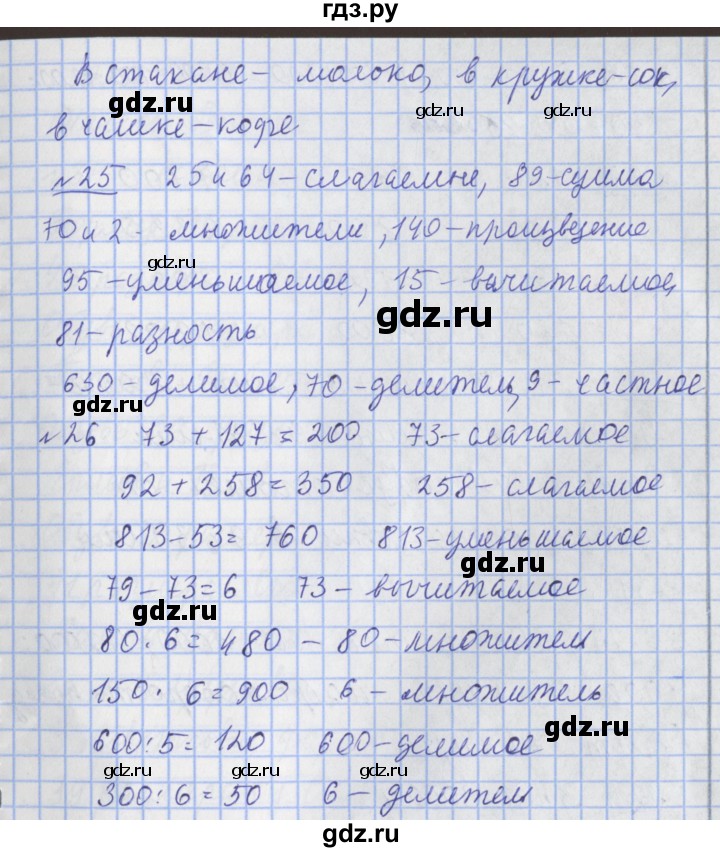 гдз.ру
В стакане - молоко, в кружке - сок,
gdz.ru
в чашке - кофе
№25 25 и 64 - слагаемые, 89 - сумма
gdz.ru
70 и 2 - множители, 140 - произведение
gdz.ru gdz.ru
95 - уменьшаемое, 15 - вычитаемое,
gdz.ru
81 - разность
630 - делимое, 70 - делитель, 9 - частное
gdz.ru
№26 73 + 127 = 200 73 - слагаемое
gdz.ru
92 + 258 = 350 258 - слагаемое
813 - 53 = 760 813 - уменьшаемое
gdz.ru
79 - 73 = 6 73 - вычитаемое
gdz.ru
80 · 6 = 480 - 80 - множитель
150 · 6 = 900 6 - множитель
gdz.ru
600 : 5 = 120 600 - делимое
gdz.ru gdz.ru gdz.ru gdz.ru
300 : 6 = 50 6 - делитель
gdz.ru